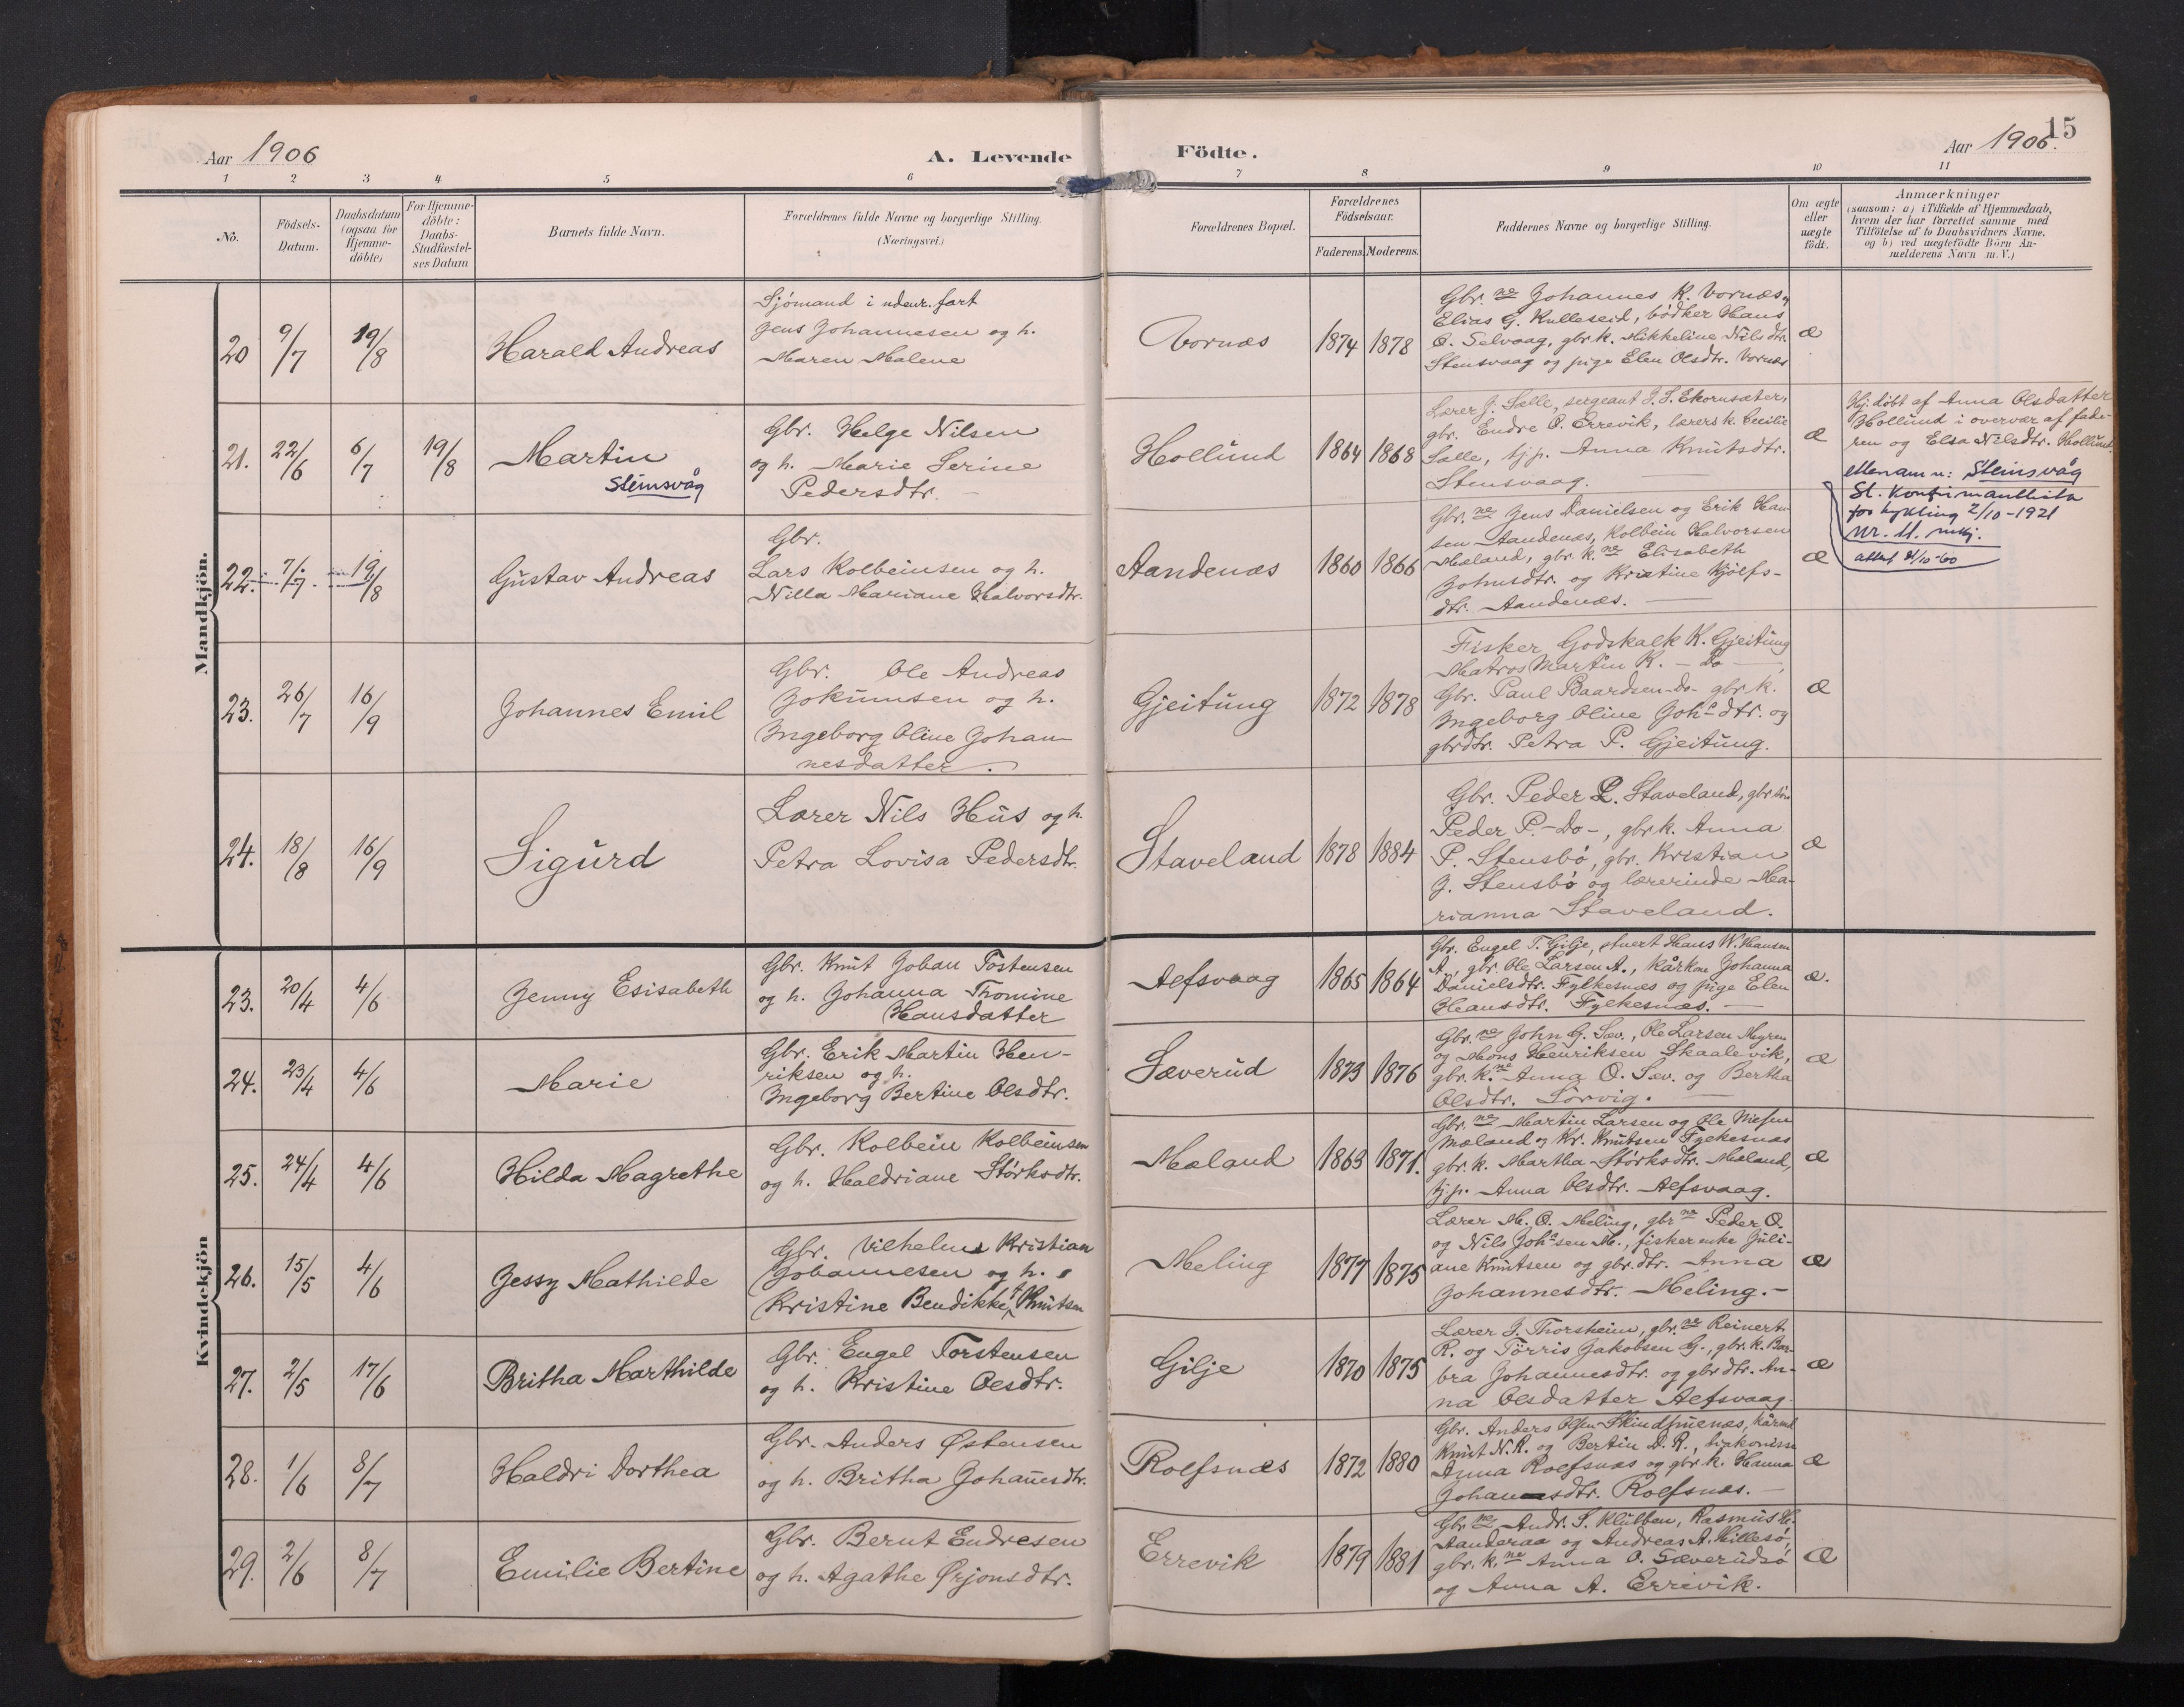 Aar 1906
A. Levende
Födte.
Aar 1906.
15
1 2 3 4 5 6 7 8 9 10 11
No.
Födsels-
Datum.
Daabsdatum
(ogsaa for
Hjemme-
döbte)
For Hjemme-
döbte:
Daabs-
Stadfæstel-
ses Datum
Barnets fulde Navn.
Forældrenes fulde Navne og borgerlige Stilling.
(Næringsvei.)
Forældrenes Bopæl.
Forældrenes
Födselsaar.
Faderens. Moderens.
Faddernes Navne og borgerlige Stilling.
Om ægte
eller
uægte
födt.
Anmærkninger
(saasom: a) i Tilfælde af Hjemmedaab,
hvem der har forrettet samme med
Tilföielse af to Daabsvidners Navne.
og b) ved uægtefödte Börn An-
melderens Navn m. V.)
Mandkjön.
20 9/7 19/8
Harald Andreas
Sjömand i udenr. fart
Jens Johannesen og h.
Maren Malene
Vornæs
1874 1878
Gbr. ne Johannes K. Vornæs,
Elias G. Kulleseid, bødker Hans
O. Selvaag, gbr.k. Mikkeline Nilsdtr.
Stensvaag og pige Elen Olsdtr. Vornæs
æ
21. 22/6 6/7 19/8
Martin
Steinsvåg
Gbr. Helge Nilsen
og h. Marie Serine
Pedersdtr.
Hollund
1864 1868
Lærer J. Salle, sergeant J. S. Ekornsæter,
gbr. Endre O. Errevik, lærersk. Cecilie
Salle, tj.p. Anna Knutsdtr.
Stensvaag.
æ
Hj. döbt af Anna Olsdatter
Hollund i overvær af fade-
ren og Elsa Nilsdtr. Hollund.
ettenamn: Steinsvåg
Sl. Konfirmantlista
for Fykling 2/10-1921
nr. 11. mkj.
attest 21/10-60
22. 7/7 19/8
Gustav Andreas
Gbr.
Lars Kolbeinsen og h.
Nilla Mariane Halvorsdtr.
Aandenæs
1860 1866
Gbr. ne Jens Danielsen og Erik Han
sen Aandenæs, Kolbein Halvorsen
Mæland, gbr.k. ne Elisabeth
Johnsdtr. og Kristine Kjölfs-
dtr. Aandenæs.
æ
23. 26/7 16/9
Johannes Emil
Gbr. Ole Andreas
Jokumsen og h.
Ingeborg Oline Johan-
nesdatter.
Gjeitung
1872 1878
Fisker Godskalk K. Gjeitung
Matros Martin K. - Do -
Gbr. Paul Baardsen - Do - gbr.k.
Ingeborg Oline Johs dtr. og
gbrdtr. Petra P. Gjeitung.
æ
24. 18/8 16/9
Sigurd
Lærer Nils Hus og h.
Petra Lovisa Pedersdtr.
Staveland
1878 1884
Gbr. Peder L. Staveland, gbr.sön
Peder P. - Do -, gbr.k. Anna
P. Stensbö, gbr. Kristian
J. Stensbö og lærerinde Ma-
rianna Staveland.
æ
Kvindekjön
23. 20/4 4/6
Jenny Esisabeth
Gbr. Knut Johan Tostensen
og h. Johanna Thomine
Hansdatter
Alfsvaag
1865 1864
Gbr. Engel T. Gilje, stuert Hans W. Hansen
A., gbr. Ole Larsen A., Kårkone Johanna
Danielsdtr. Fylkesnæs og pige Elen
Hansdtr. Fylkesnæs.
æ.
24. 23/4 4/6
Marie
Gbr. Erik Martin Hen-
riksen og h.
Ingeborg Bertine Olsdtr.
Sæverud
1873 1876
Gbr. ne John G. Sæv., Ole Larsen Myren
og Mons Henriksen Skaalevik,
gbr. k. ne Anna O. Sæv. og Bertha
Olsdtr. Sörvig.
æ
25. 24/4 4/6
Hilda Magrethe
Gbr. Kolbein Kolbeinsen
og h. Haldriane Störksdtr.
Mæland
1863 1871.
Gbr. ne Martin Larsen og Ole Nielsen
Mæland og Kr. Knutsen Fylkesnæs
gbr. k. Martha Störksdtr. Mæland,
tj.p. Anna Olsdtr. Alfsvaag.
æ
26. 15/5 4/6
Jessy Mathilde
Gbr. Vilhelm Kristian
Johannesen og h.
Kristine Bendikke Knutsen
Meling
1877 1875
Lærer M. O. Meling, gbr ne Peder O.
og Nils Johs sen M., fisker enke Juli-
ane Knutsen og gbr.dtr. Anna
Johannesdtr. Meling.
æ
27. 2/5 17/6
Britha Marthilde
Gbr. Engel Torstensen
og h. Kristine Olsdtr.
Gilje
1870 1875
Lærer J. Thorsheim, gbr. ne Reinert
R. og Törris Jakobsen G., gbr.k. Bar-
bra Johannesdtr. og gbrdtr. An-
na Olsdatter Alfsvaag.
æ
28. 1/6 8/7
Haldri Dorthea
Gbr. Anders Østensen
og h. Britha Johanesdtr.
Rolfsnæs
1872 1880
Gbr. Anders Olsen Skindfuenæs, kårmd.
Knut N. R. og Bertin D. R., diakonisse
Anna Rolfsnæs og gbr. k. Hanna
Johannesdtr. Rolfsnæs.
æ
29. 2/6 8/7
Emilie Bertine
Gbr. Bernt Endresen
og h. Agathe Ørjonsdtr.
Errevik
1879 1881
Gbr. ne Andr. S. Klubben, Rasmus H.
Aanderaa og Andreas A. Hillesö,
gbr. k. ne Anna O. Sæverudsö
og Anna A. Errevik.
æ